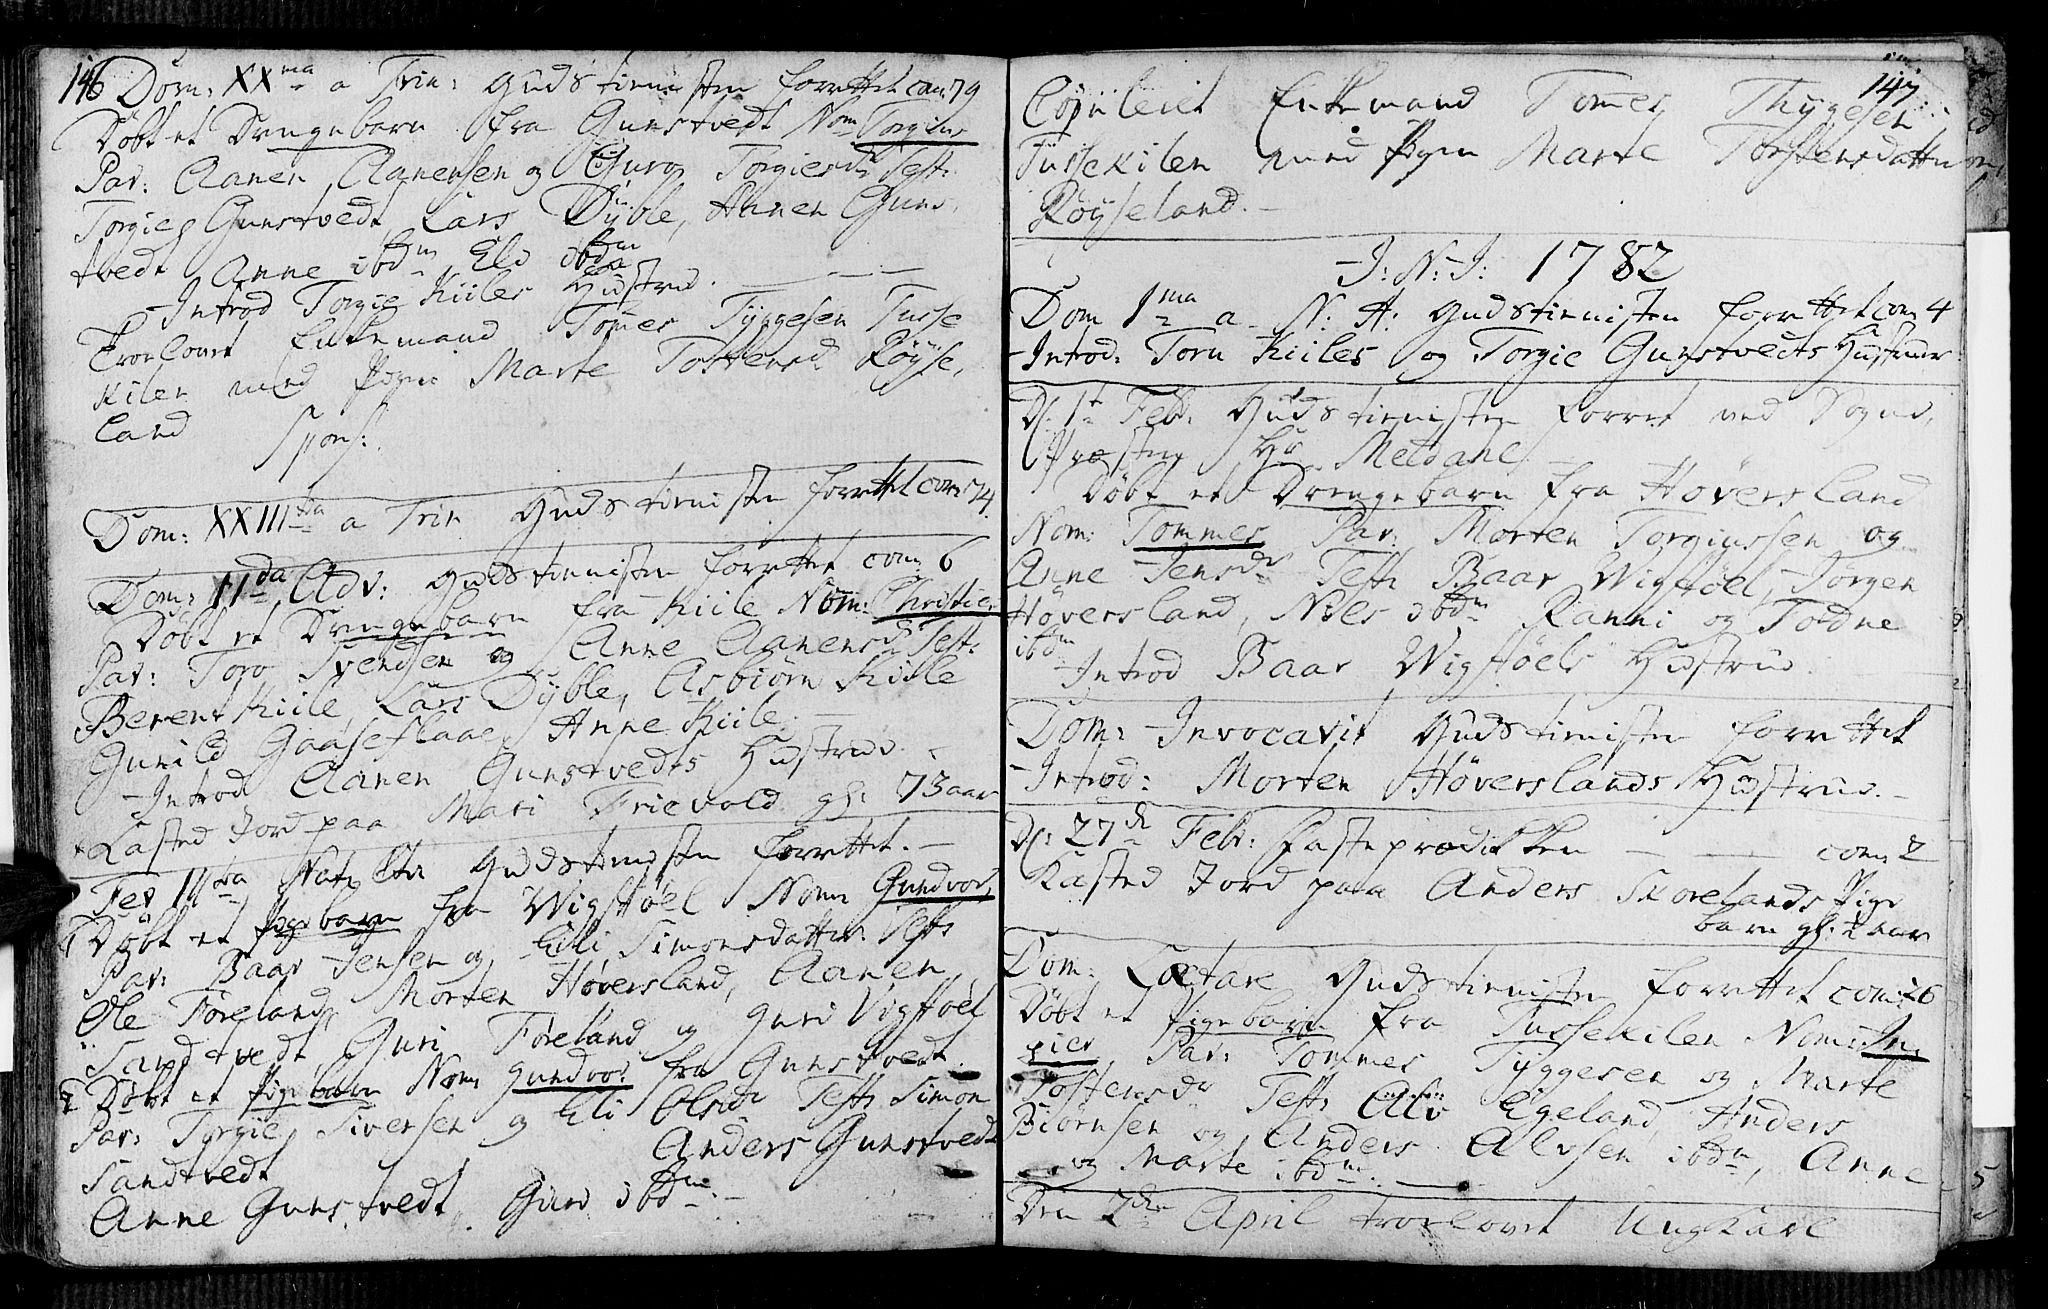 146
Dom: XXma a Trin: Gudstienisten forrettet com 79
Døbt et Drengebarn fra Gunstvedt Nom Torgius
Par: Aanen Aanensen og Guro Torgiesdr Test:
Torgie Gunstvedt, Lars Dyble, Aanen Guns,
tvedt Anne ibdm Eli ibdm
Introd Torgie Kiiles Hustrue.
Trorlovet Enkemand Tomes Tyggesen Tusse
Kilen med Pigen Marte Tostensd Røyse,
land Spons:
Dom: XXIIItia a Trin Gudstienisten forrettet com 74
Dom: IIda Adv: Gudstienisten forrettet com 6
Døbt et Drengebarn fra Kiile Nom: Christien
Par: Toro Svendsen og Anne Aanensdr Test:
Berent Kiile, Lars Dyble, Asbiørn Kiile
Gunild Gaaseflaae, Anne Kiile.
Introd Aanen Gunstvedts Hustrue.
Kasted Jord paa Mari Frievold gl: 73 aar
Fer IIItia Nat: Chr Gudstienisten forrettet.
1 Døbt et Pigebarn fra Wigstøel Nom Gundvor
Par: Baar Jensen og Eli Simonsdatter Test:
Ole Føreland, Morten Høversland, Aanen
Sandtvedt Guri Føreland og Guri Vigstøel
2 Døbt et Pigebarn Nom Gundvor fra Gunstvedt
Par: Torgie Siversen og Eli Olsdr Test: Simon
Sandtvedt Anders Gunstvedt
Anne Gunstvedt Guri ibdm
147
Copuleret Enkemand Tomes Thygesen
Tussekilen med Pigen Marte Torstensdatter
Røyseland.
J: N: J: 1782
Dom 1ma a N: A: Gudstienisten forrettet com 4
Introd: Toru Kiiles og Torgie Gunstvedts Hustruer
D: 1te Febr: Gudstienisten forret ved Sogne,
Præsten Hr Meldahl
Døbt et Drengebarn fra Høversland
Nom: Tommes Par: Morten Torgiussen og
Anne Jensdr Test: Baar Wigstøel, Jørgen
Høversland, Niels ibdm Ranni og Todne
ibdm
Introd Baar Wigstøels Hustrue
Dom: Invocavit Gudstienisten forrettet
Introd: Morten Høverslands Hustrue.
D: 27de Febr: Fasteprædikken com 2
Kasted Jord paa Anders Skorelands Pige
barn gl: 2 aar
Dom: Lætare Gudstienisten forrettet com: 26
Døbt et Pigebarn fra Tussekilen Nom: In,
gier Par: Tommes Tyggesen og Marte
Tostensdr Test: Alv Egeland Anders
Biørnsen og Anders Alvsen ibdm, Anne
og Marte ibdm.
Den 2den April trorlovet Ungkarl